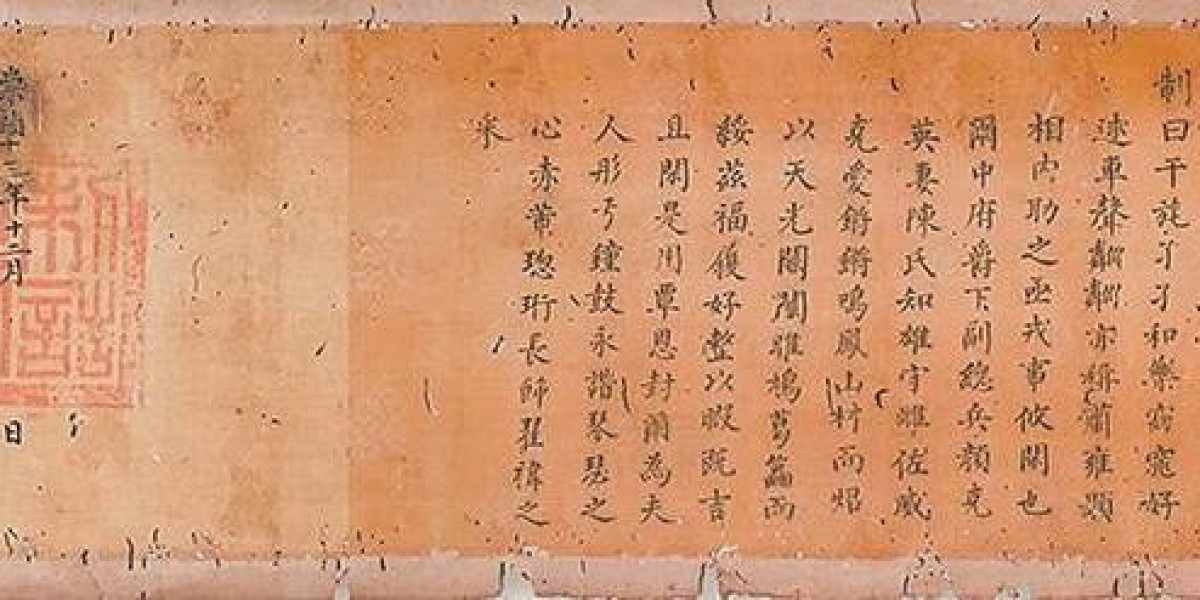 制曰干旄孑孑和樂窈窕好
逑車聲轔轔亦稱肅雍顯
相内助之亟戎事攸関也
爾中府爵下副總兵顏克
英妻陳氏知雄守雌佐威
克愛鏘鏘鳴鳳山而炤
以天光關關雎鳩葛藟而
綏茲福履好整以暇既吉
且閑是用覃恩封爾為夫
人彤弓鐘鼓永諧琴瑟之
心赤芾璁珩長飾翟褘之
采
崇禎十三年十二月 日